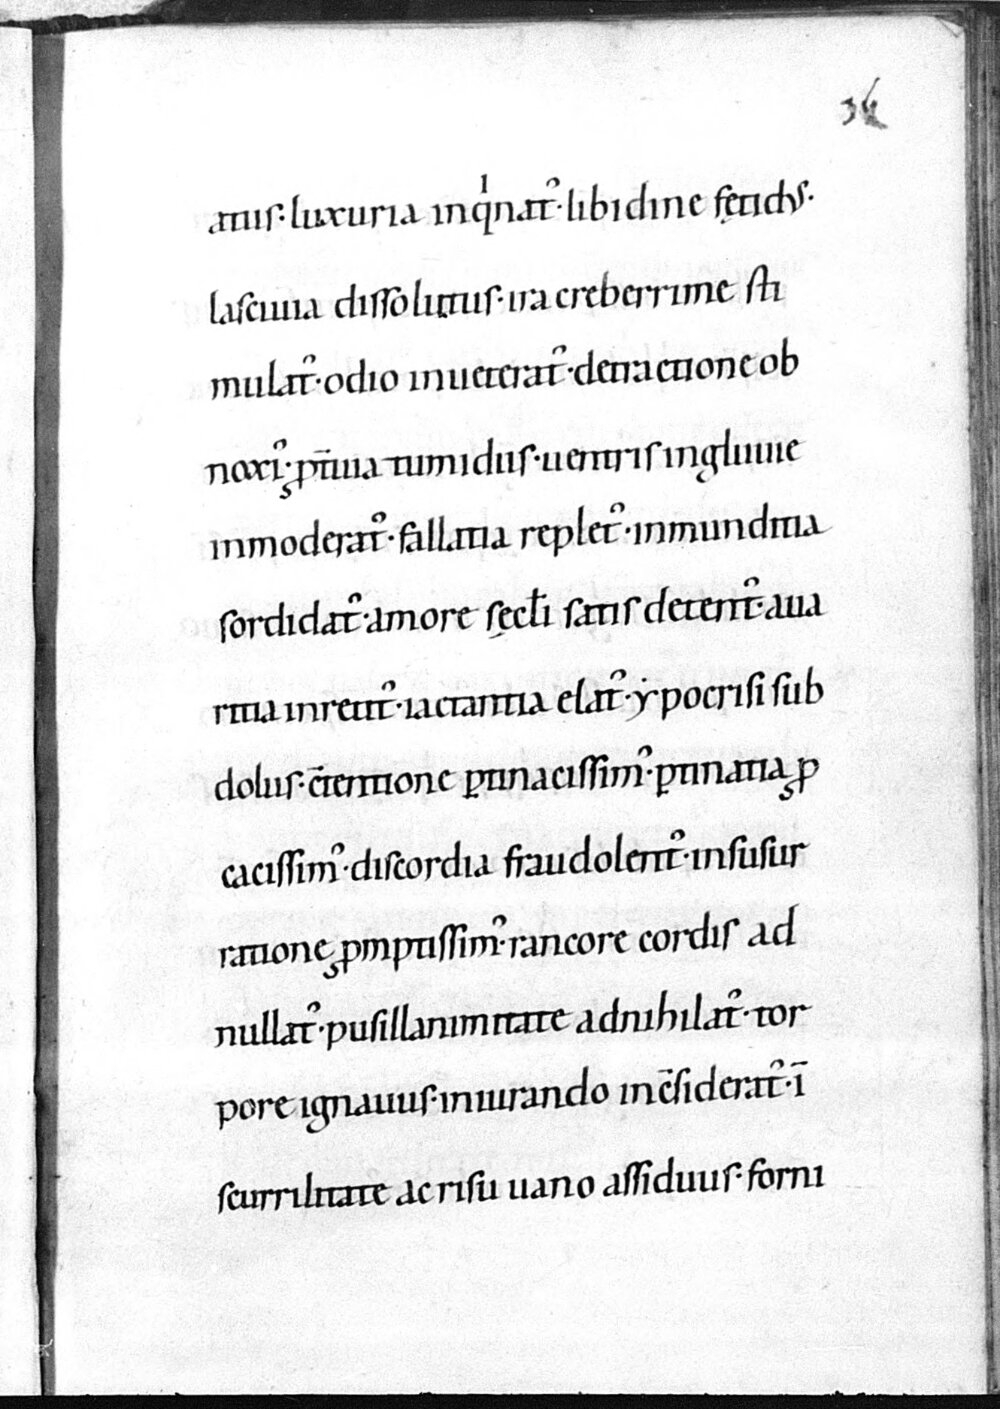 34
atus· luxuria inqͥnatꝰ· libidine fętidus·
lasciuia dissolutus· ira creberrime sti
mulatꝰ· odio inueteratꝰ· detractione ob
noxiꝰ· ꝓt̄uia tumidus· uentris ingluuie
inmoderatꝰ· fallatia repletꝰ· inmunditia
sordidatꝰ· amore sęcłi satis detentꝰ· aua
ritia inretitꝰ· iactantia elatꝰ· ẏpocrisi sub
dolus· c̄tentione ꝑtinacissimꝰ· ꝑtinatia ꝓ
cacissimꝰ· discordia fraudolentꝰ· insusur
ratione ꝓmptissimꝰ· rancore cordis ad
nullatꝰ· pusillanimitate adnihilatꝰ· tor
pore ignauus· iniurando inc̄sideratꝰ· ī
scurrilitate ac risu uano assiduus· forni